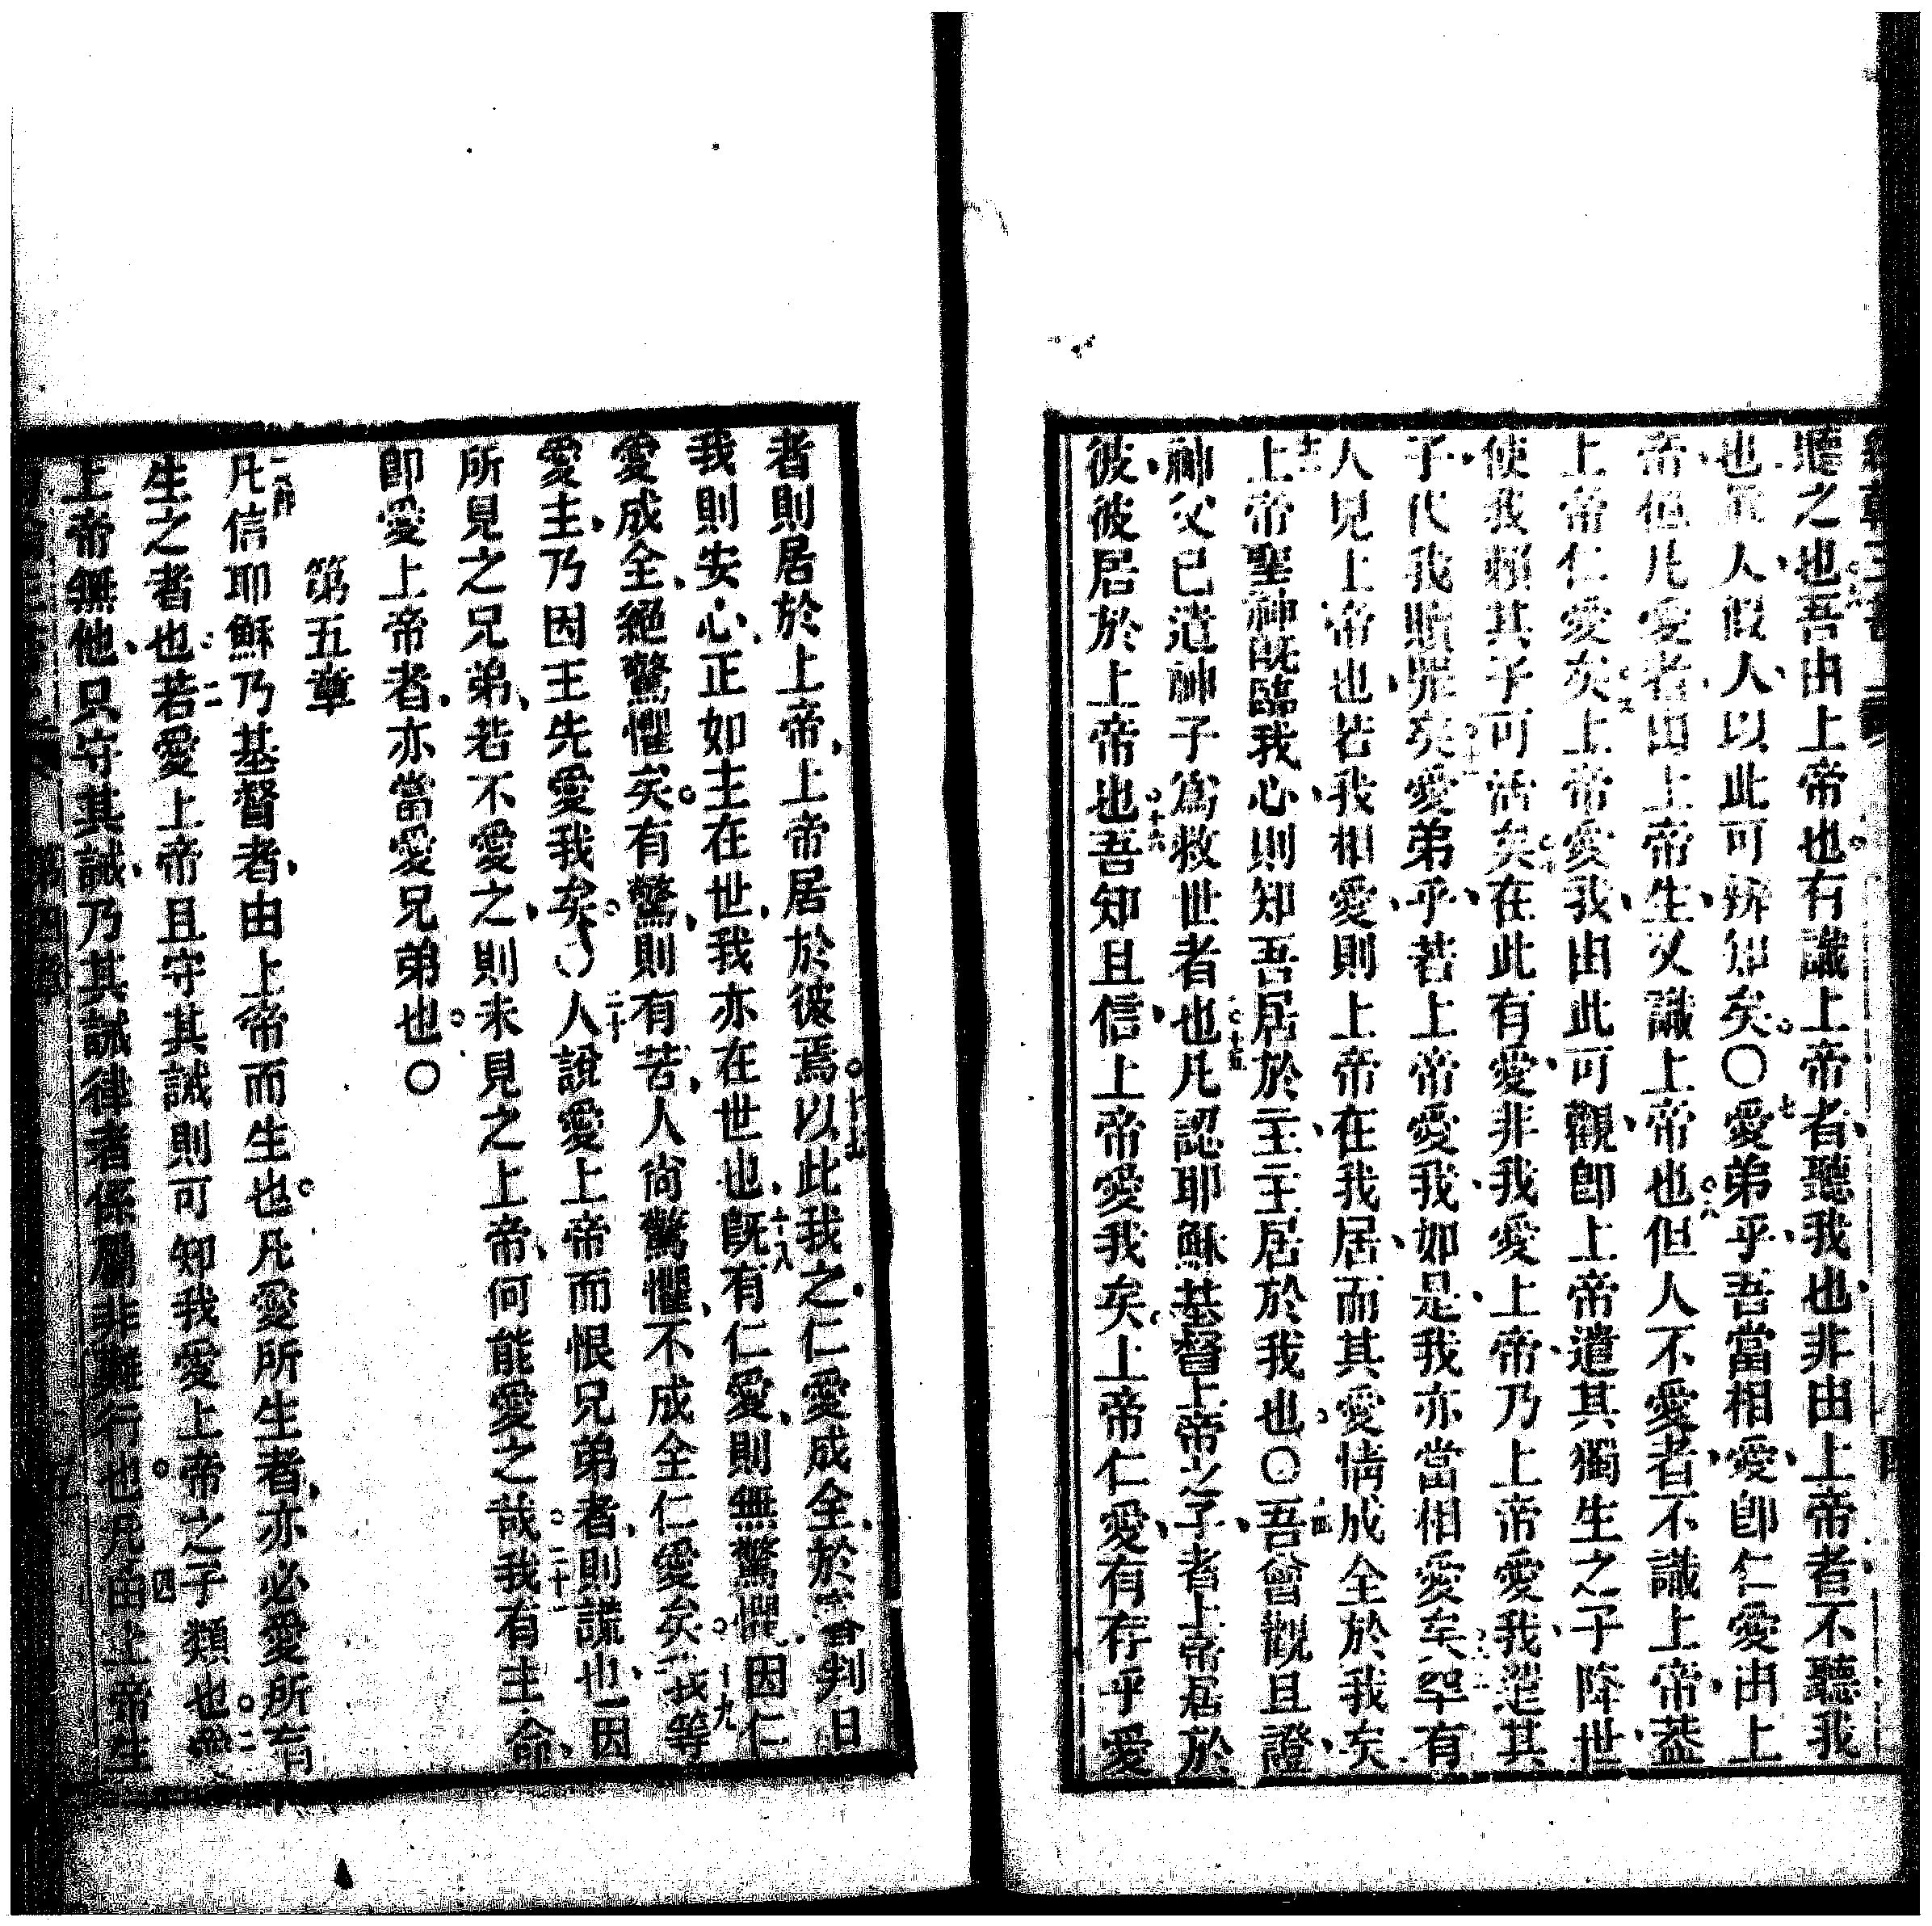 聽之也吾由上帝也有識上帝者聽我也非由上帝者不聽我
也眞人假人以此可辨知矣〇七愛弟乎吾當相愛卽仁愛由上
帝但凡愛者由上帝生又識上帝也八但人不愛者不識上帝蓋
上帝仁愛矣九上帝愛我由此可觀卽上帝遣其獨生之子降世
使我賴其子可活矣十在此有愛非我愛上帝乃上帝愛我遣其
子代我贖罪矣十一愛弟乎若上帝愛我如是我亦當相愛矣十二罕有
人見上帝也若我相愛則上帝在我居而其愛情成全於我矣
十三上帝聖神旣臨我心則知吾居於主主居於我也〇十四吾曾觀且證
神父已遣神子爲救世者也十五凡認耶穌基督上帝之子者上帝居於
彼彼居於上帝也十六吾知且信上帝愛我矣上帝仁愛有存乎愛
者則居於上帝上帝居於彼焉十七以此我之仁愛成全於審判日
我則安心正如主在世我亦在世也十八旣有仁愛則無驚懼因仁
愛成全絕驚懼矣有驚則有苦人尙驚懼不成全仁愛矣十九我等
愛主乃因主先愛我矣〇二十人說愛上帝而恨兄弟者則謊也因
所見之兄弟若不愛之則未見之上帝何能愛之哉二十一我有主命
卽愛上帝者亦當愛兄弟也〇
第五章
一節凡信耶穌乃基督者由上帝而生也凡愛所生者亦必愛所有
生之者也二若愛上帝且守其誡則可知我愛上帝之子類也三
上帝無他只守其誡乃其誡律者係屬非難行也四凡由上帝生
第四章 五